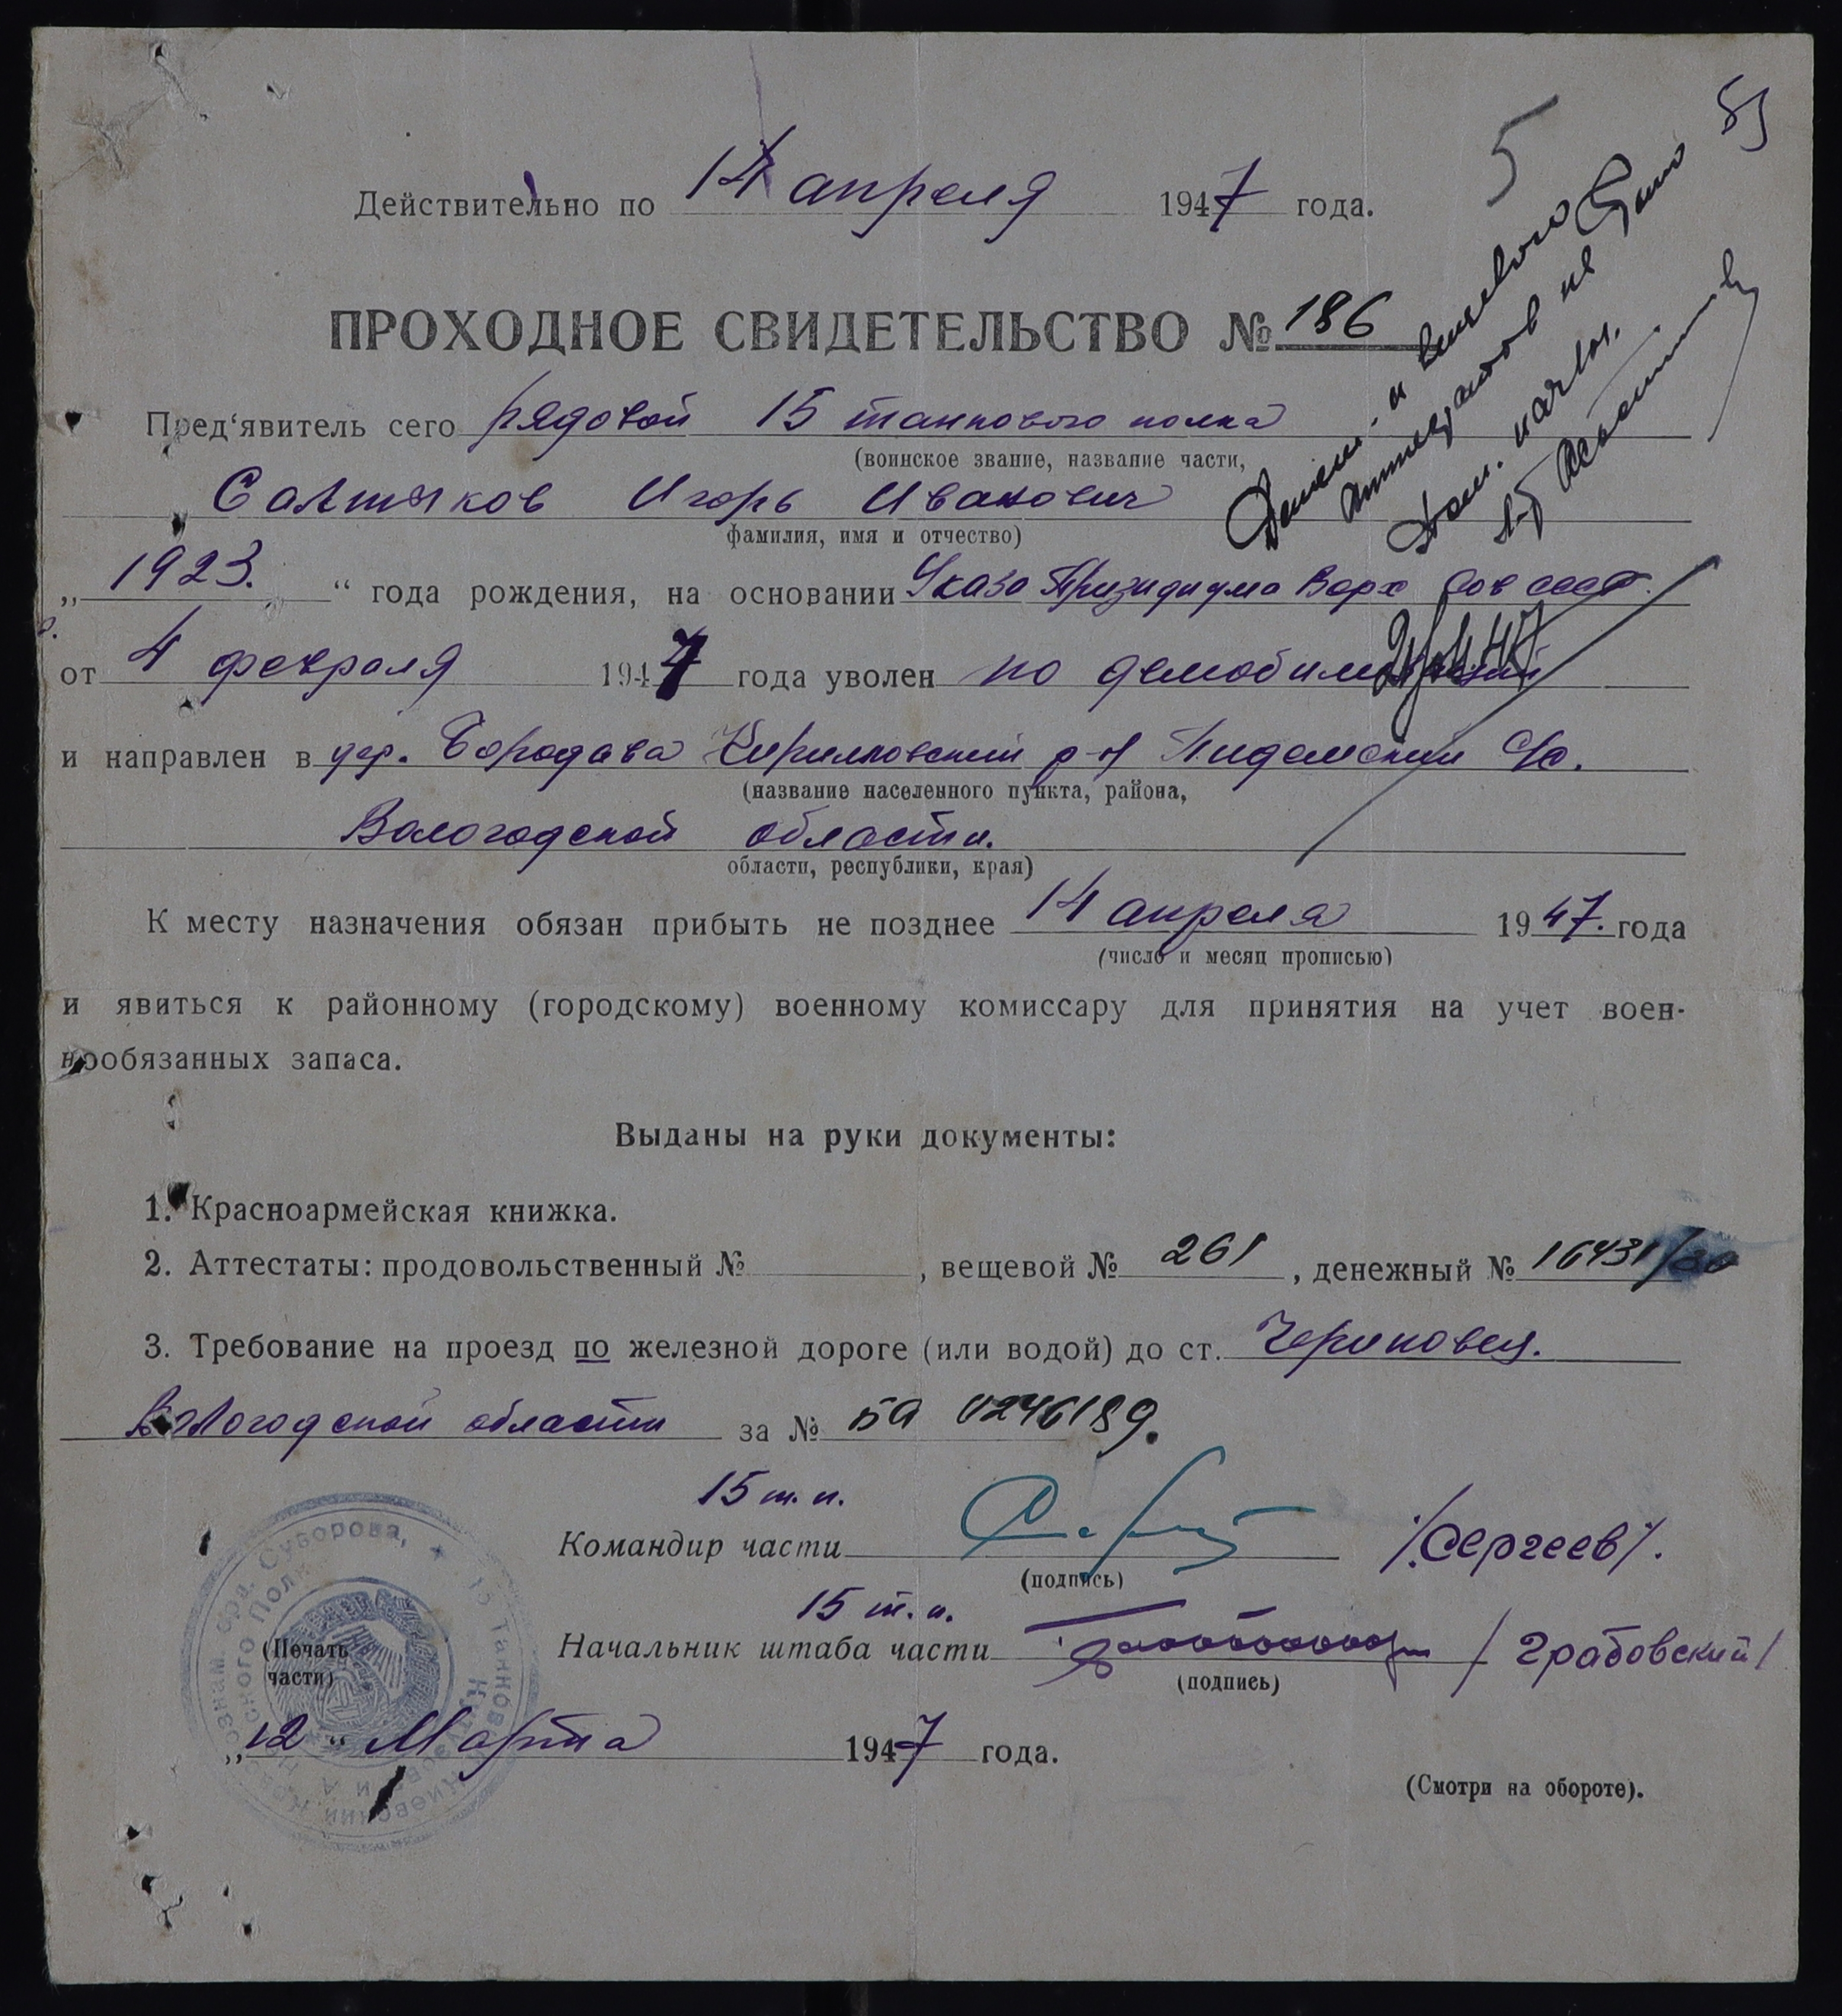 5
Действительно по 14 апреля 1947 года.
ПРОХОДНОЕ СВИДЕТЕЛЬСТВО № 186
Пред‘явитель сего рядовой 15 танкового полка
(воинское звание, название части,
Салтыков Игорь Иванович
фамилия, имя и отчество)
„ 1923. “ года рождения, на основании Указа Призидиума Верх Сов СССР.
от 4 февраля 1947 года уволен по демобилизации
и направлен в дер. Бородава Кирилловский р-н С/с.
(название населенного пункта, района,
Вологодской области.
области, республики, края)
К месту назначения обязан прибыть не позднее 14 апреля 1947. года
(число и месяц прописью)
и явиться к районному (городскому) военному комиссару для принятия на учет воен-
нообязанных запаса.
Выданы на руки документы:
1. Красноармейская книжка.
2. Аттестаты: продовольственный № , вещевой № 261 , денежный № 16431/30
3. Требование на проезд по железной дороге (или водой) до ст. Череповец.
Вологодской области за № БА 0246189.
15 т.п.
Командир части /Сергеев/.
(подпись)
15 т.п.
Начальник штаба части /Грабовский/
(подпись)
(Печать
части)
„12“ Марта 1947 года.
(Смотри на обороте).
вещевого
аттестатов не
нач.
Суворова, ★ 15 Танковый Киевский